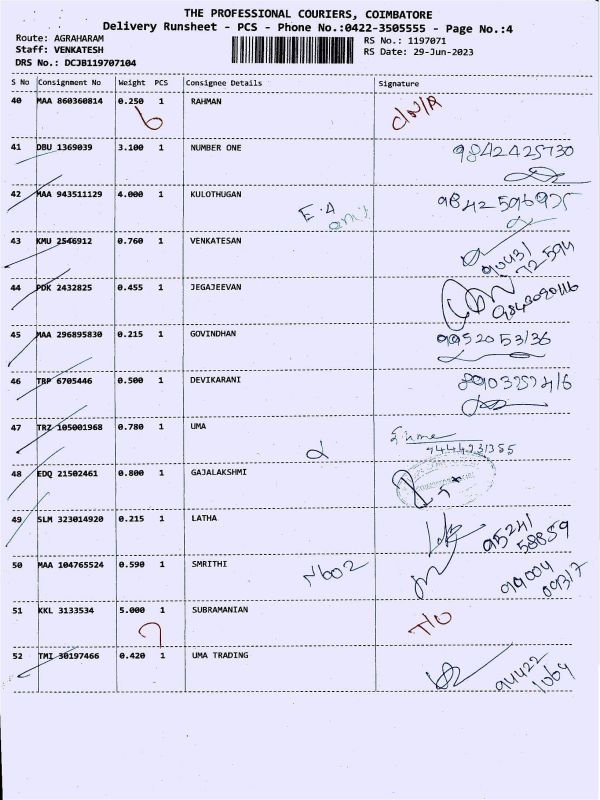 THE PROFESSIONAL COURIERS, COIMBATORE
Delivery Runsheet - PCS - Phone No.:0422-3505555 - Page No.:4
Route: AGRAHARAM RS No.: 1197071
Staff: VENKATESH RS Date: 29-Jun-2023
DRS No.: DCJB119707104
S No Consignment No Weight PCS Consignee Details Signature
40 MAA 860360814 0.250 1 RAHMAN
6 DN/R
41 DBU 1369039 3.100 1 NUMBER ONE 9842425730
42 MAA 943511129 4.000 1 KULOTHUGAN 9842596975
E.A
43 KMU 2546912 0.760 1 VENKATESAN 90431
72594
44 PDK 2432825 0.455 1 JEGAJEEVAN
45 MAA 296895830 0.215 1 GOVINDHAN 9952053136
46 TRP 6705446 0.500 1 DEVIKARANI 8903252416
47 TRZ 105001968 0.780 1 UMA
7444231355
48 EDQ 21502461 0.800 1 GAJALAKSHMI
49 SLM 323014920 0.215 1 LATHA 95241
58859
50 MAA 104765524 0.590 1 SMRITHI 99004
09317
51 KKL 3133534 5.000 1 SUBRAMANIAN
7
52 TMI 30197466 0.420 1 UMA TRADING 94422
1064